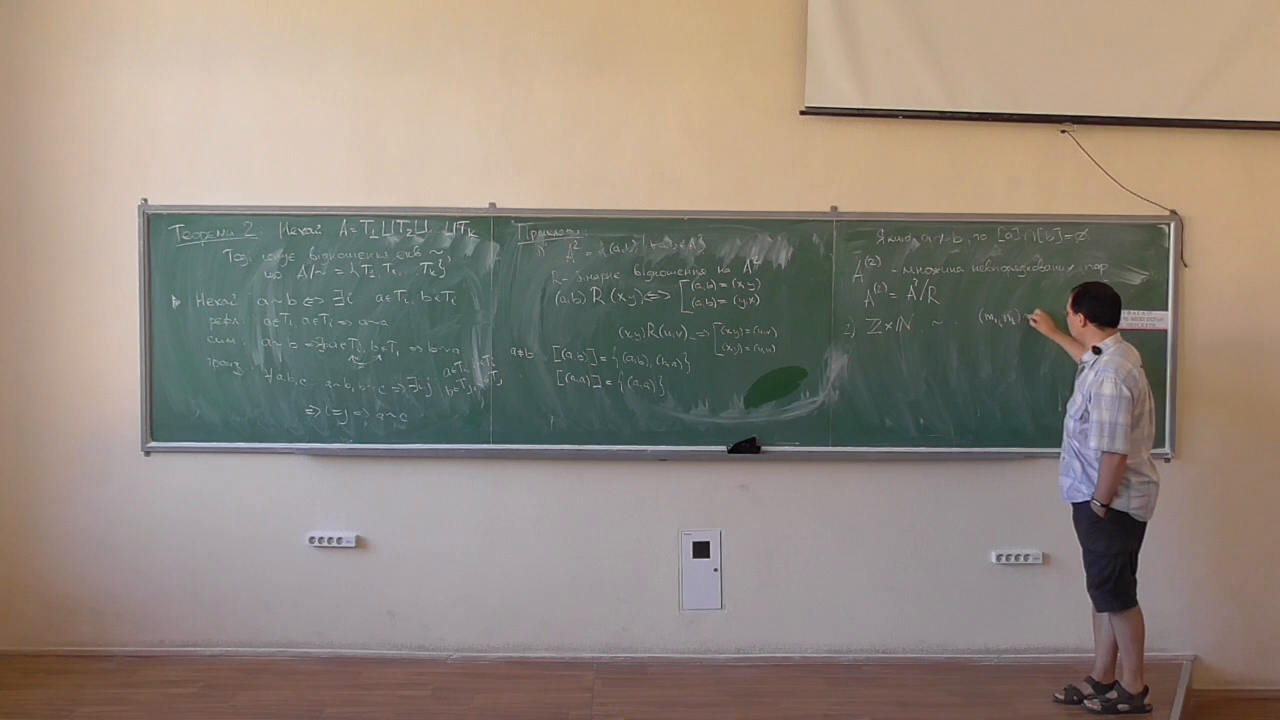 Теорема 2: Нехай A=T₁⊔T₂⊔ ⊔Tₖ
Тоді існує відношення екв ~,
що A/~ = {T₁,T₂, Tₖ}
Нехай a~b ⇔ ∃i a∈Tᵢ, b∈Tᵢ
рефл: a∈Tᵢ, a∈Tᵢ ⇒ a~a
сим: a~b ⇒ b~a
транз: ∀a,b,c a~b, b~c ⇒ ∃i,j a∈Tᵢ, b∈Tⱼ,
⇒ i=j ⇒ a~c
Приклади:
1) A² = {(a,b) | a,b∈A}
R - бінарне відношення на A²
(a,b) R (x,y) ⇔ [(a,b)=(x,y)
(a,b)=(y,x)
(x,y)R(u,v) ⇒ [(x,y)=(u,v)
a≠b [(a,b)] = {(a,b), (b,a)}
[(a,a)] = {(a,a)}
Якщо a≁b, то [a]∩[b]=∅.
A⁽²⁾ - множина невпорядкованих пар
A⁽²⁾ = A²/R
2) ℤ×ℕ ~ (m₁,n₁) ~